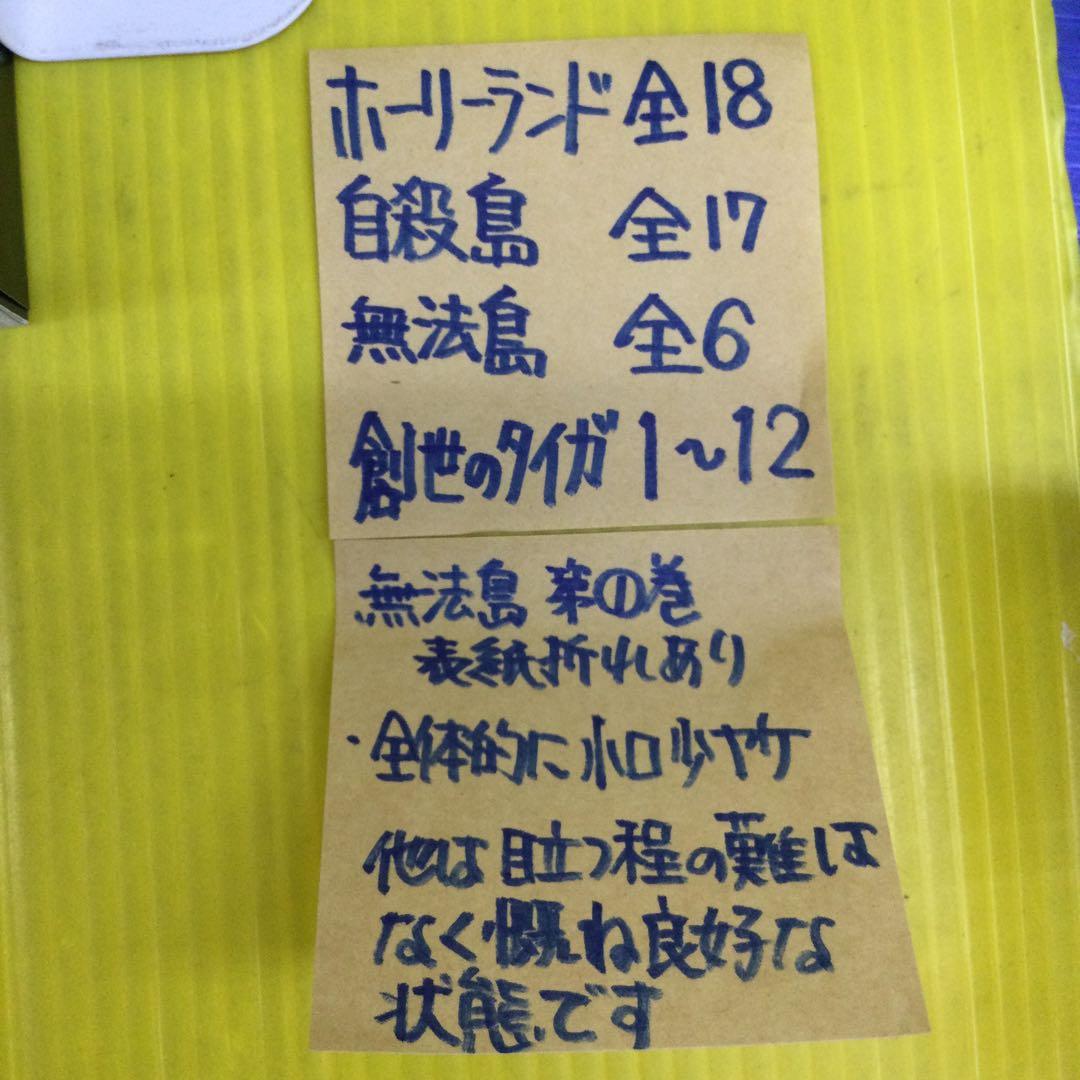 ホーリーランド 全18
自殺島 全17
無法島 全6
創世のタイガ 1〜12
無法島 第①巻
表紙折れあり
・全体的に小口少ヤケ
他は目立つ程の難は
なく概ね良好な
状態です